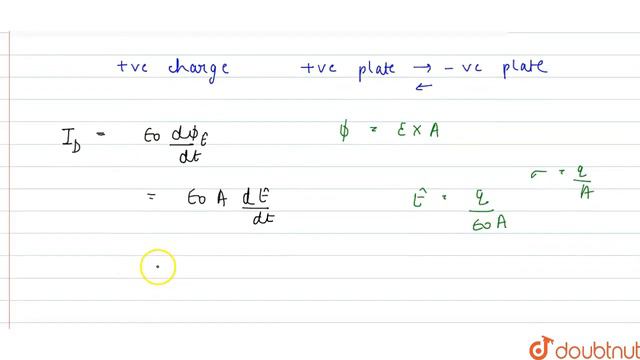 +ve charge +ve plate → - ve plate
←
I_D = ε0 dϕ_E/dt ϕ = E × A
σ = q/A
= ε0 A dE/dt E = q/ε0 A
doubtnut